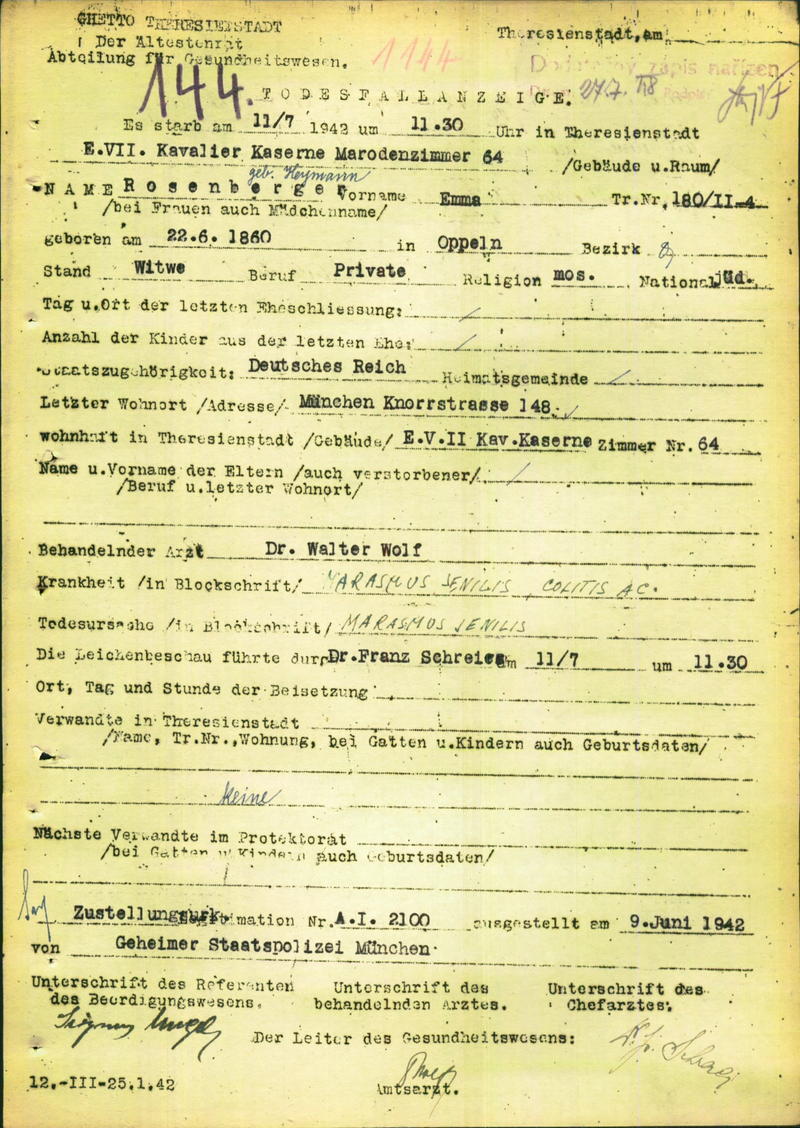 GHETTO THERESIENSTADT
Der Ältestenrat
Abteilung für Gesundheitswesen.
Theresienstadt, am
1144
144.
Dodatečný zápis nařízen
27.7.
TODESFALLANZEIGE.
Es starb am 11/7 1942 um 11.30 Uhr in Theresienstadt
E.VII. Kavalier Kaserne Marodenzimmer 64 /Gebäude u.Raum/
geb. Heymann
NAME Rosenberger Vorname Emma Tr.Nr. 180/II-4
/bei Frauen auch Mädchenname/
geboren am 22.6. 1860 in Oppeln Bezirk
Stand Witwe Beruf Private Religion mos. National. jüd.
Tag u.Ort der letzten Eheschliessung: /
Anzahl der Kinder aus der letzten Ehe: /
Staatszugehörigkeit: Deutsches Reich Heimatsgemeinde /
Letzter Wohnort /Adresse/ München Knorrstrasse 148.
wohnhaft in Theresienstadt /Gebäude/ E.V.II Kav.Kaserne Zimmer Nr. 64
Name u.Vorname der Eltern /auch verstorbener/ /
/Beruf u.letzter Wohnort/
Behandelnder Arzt Dr. Walter Wolf
Krankheit /in Blockschrift/ MARASMUS SENILIS COLITIS AC.
Todesursache /in Blockschrift/ MARASMUS SENILIS
Die Leichenbeschau führte durch Dr.Franz Schreier am 11/7 um 11.30
Ort, Tag und Stunde der Beisetzung
Verwandte in Theresienstadt
/Name, Tr.Nr.,Wohnung, bei Gatten u.Kindern auch Geburtsdaten/
keine
Nächste Verwandte im Protektorat
/bei Gatten u Kindern auch Geburtsdaten/
Zustellungsurk. Nr. A.I. 2100 ausgestellt am 9.Juni 1942
von Geheimer Staatspolizei München.
Unterschrift des Referenten Unterschrift des Unterschrift des
des Beerdigungswesens. behandelnden Arztes. Chefarztes.
Der Leiter des Gesundheitswesens:
12.-III-25.1.42
Amtsarzt.